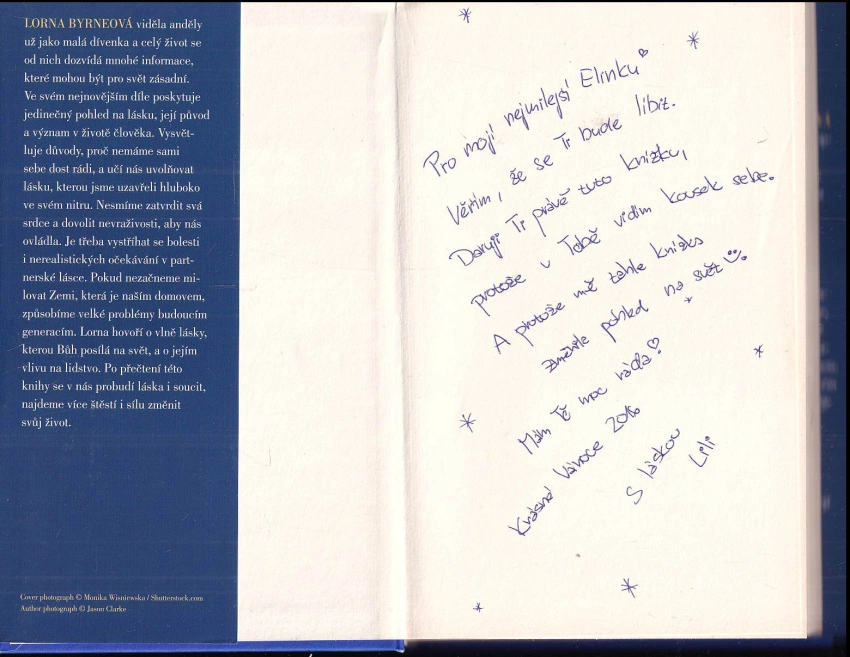 LORNA BYRNEOVÁ viděla anděly
už jako malá dívenka a celý život se
od nich dozvídá mnohé informace,
které mohou být pro svět zásadní.
Ve svém nejnovějším díle poskytuje
jedinečný pohled na lásku, její původ
a význam v životě člověka. Vysvět-
luje důvody, proč nemáme sami
sebe dost rádi, a učí nás uvolňovat
lásku, kterou jsme uzavřeli hluboko
ve svém nitru. Nesmíme zatvrdit svá
srdce a dovolit nevraživosti, aby nás
ovládla. Je třeba vystříhat se bolesti
i nerealistických očekávání v part-
nerské lásce. Pokud nezačneme mi-
lovat Zemi, která je naším domovem,
způsobíme velké problémy budoucím
generacím. Lorna hovoří o vlně lásky,
kterou Bůh posílá na svět, a o jejím
vlivu na lidstvo. Po přečtení této
knihy se v nás probudí láska i soucit,
najdeme více štěstí i sílu změnit
svůj život.
Cover photograph © Monika Wisniewska / Shutterstock.com
Author photograph © Jason Clarke
Pro moji nejmilejší Elinku
Věřím, že se Ti bude líbit.
Daruji Ti právě tuto knížku,
protože v Tobě vidím kousek sebe.
A protože mě tahle knížka
změnila pohled na svět
Mám Tě moc ráda!
Krásné Vánoce 2016
S láskou
Lili